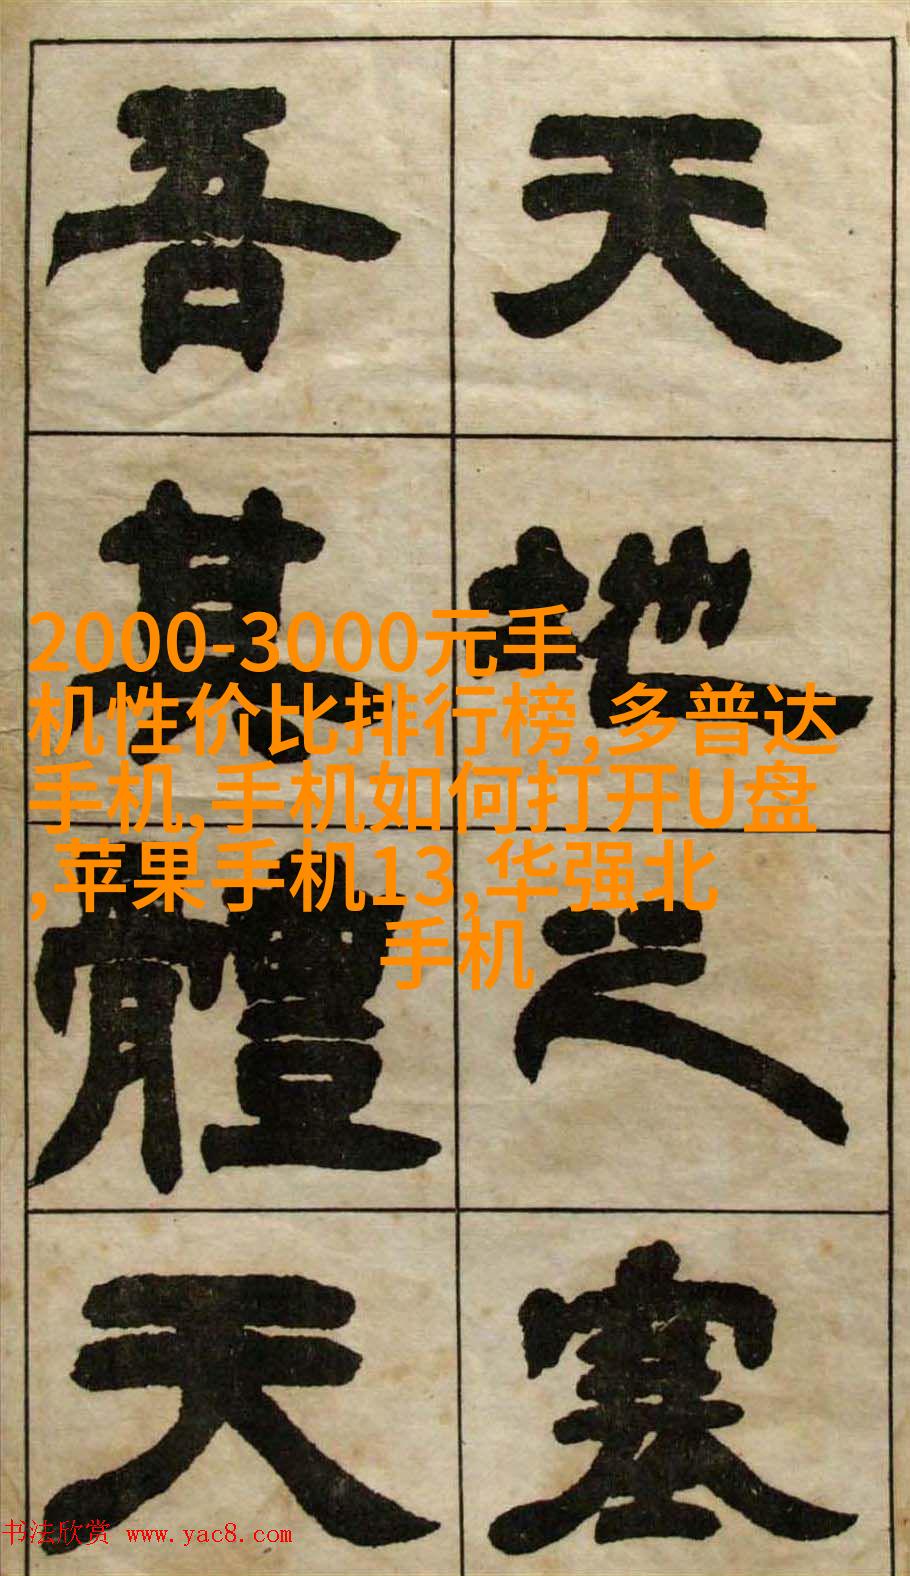 天地之塞
吾其體天
2000-3000元手
机性价比排行榜,多普达
手机,手机如何打开U盘
,苹果手机13,华强北
手机
书法欣赏 www.yac8.com